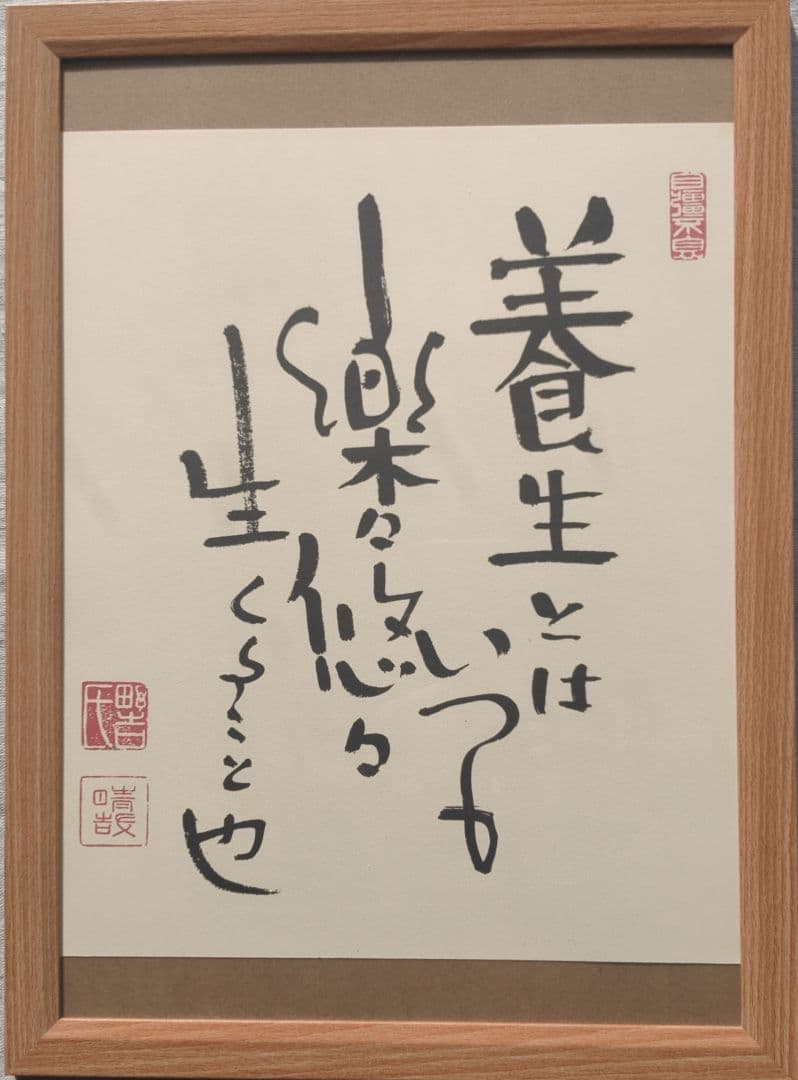 自彊不息
養生とは
いつも
楽々悠々
生くること也